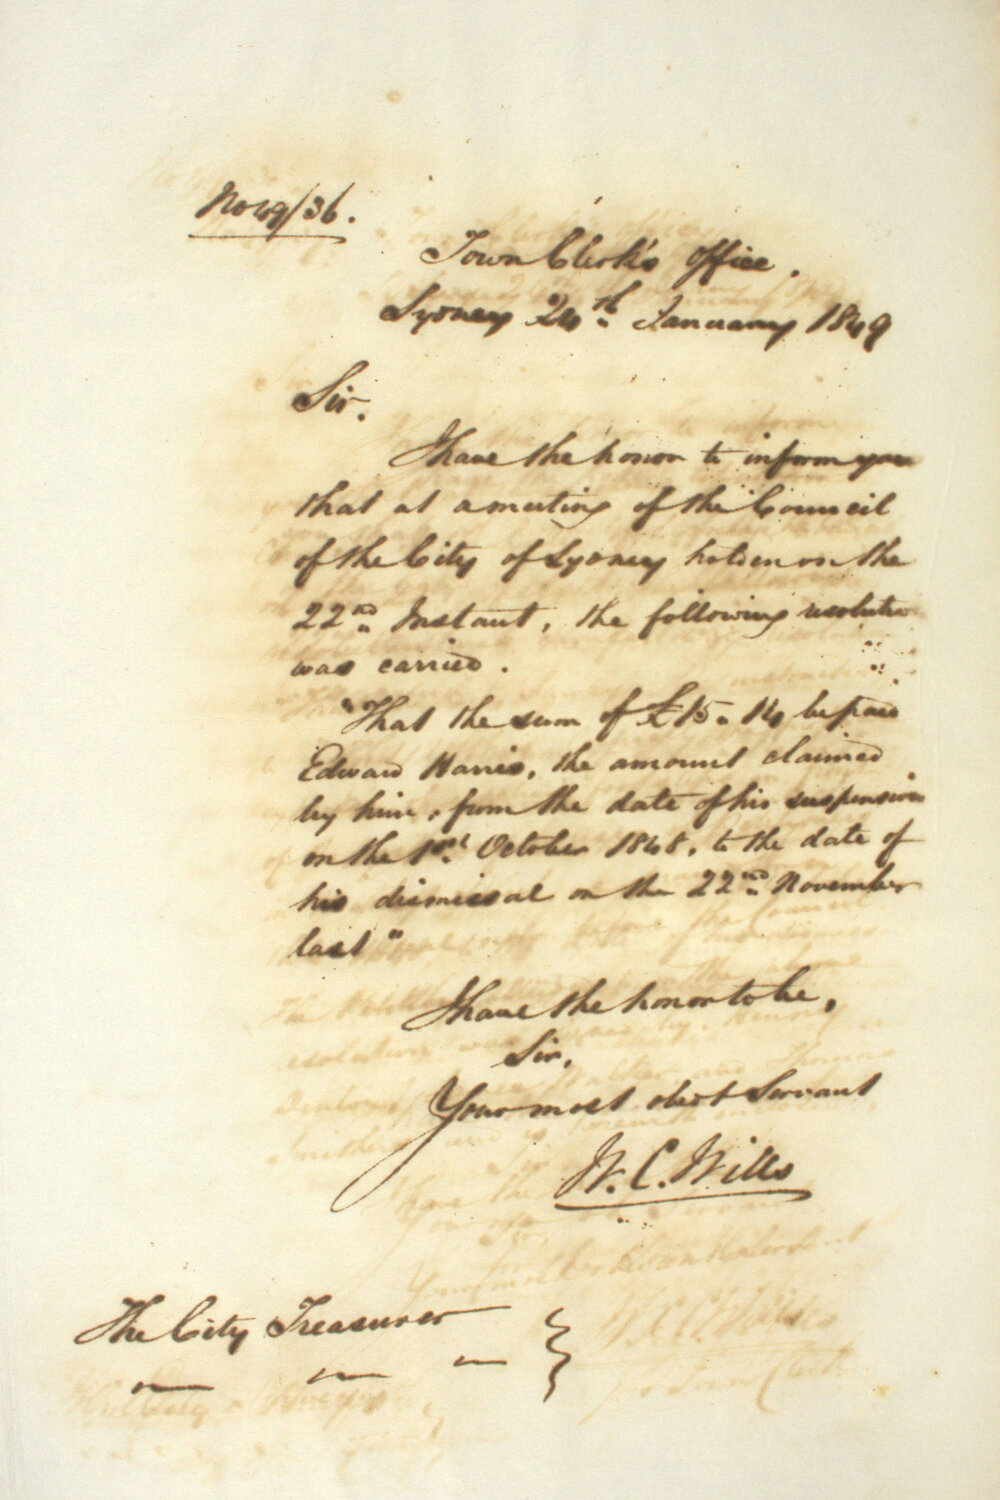 No 49/36.
Town Clerk's Office.
Sydney 24th January 1849
Sir.
I have the honor to inform you
that at a meeting of the Council
of the City of Sydney holden on the
22nd Instant, the following resolution
was carried.
"That the sum of £15.14 be paid
Edward Harris, the amount claimed
by him, from the date of his suspension
on the 1st October 1848, to the date of
his dismissal on the 22nd November
last"
I have the honor to be,
Sir,
Your most obedt Servant
W. C. Wills
The City Treasurer